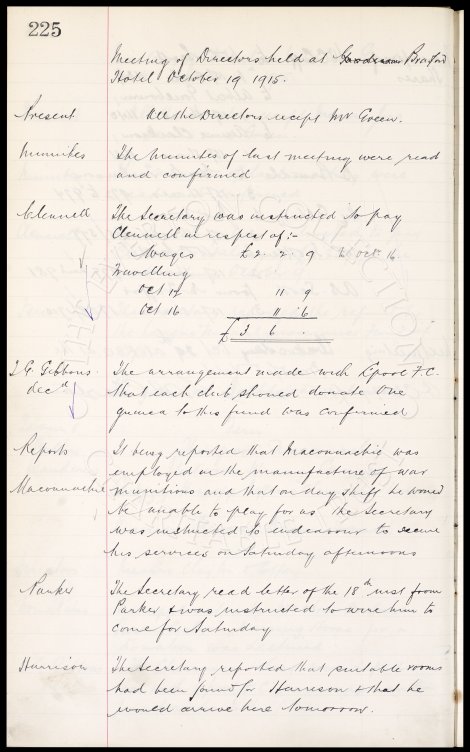 225
Meeting of Directors held at Goodison Bradford
Hotel October 19 1915.
Present All the Directors except Mr Green.
Minutes The Minutes of last meeting were read
and confirmed
Clennell The Secretary was instructed to pay
Clennell in respect of :-
Wages £2. 2. 9 to Oct 16
Travelling
Oct 17 11 9
Oct 16 11 6
£ 3 6 .
J. G. Gibbons The arrangement made with Lpool F.C.
decd that each club should donate One
guinea to this fund was confirmed
Reports It being reported that Maconnachie was
employed in the manufacture of war
Maconnachie munitions and that on day shift he would
be unable to play for us the Secretary
was instructed to endeavour to secure
his services on Saturday afternoons
Parker The Secretary read letter of the 18th inst from
Parker & was instructed to wire him to
come for Saturday
Harrison The Secretary reported that suitable rooms
had been found for Harrison & that he
would arrive here tomorrow.